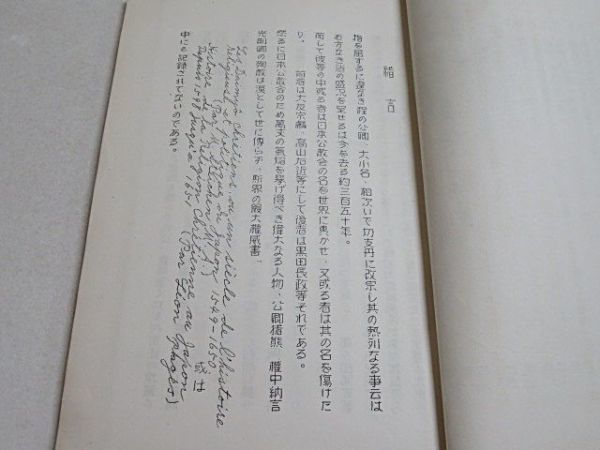 緒言
指を屈するに遑なき程の公卿、大小名、相次いで切支丹に改宗し其の熱烈なる事云は
む方なき迄の盛況を呈せるは今を去る約三百五十年。
而して彼等の中或る者は日本公教会の名を世界に輝かせ、又或る者は其の名を傷けた
り、 前者は大友宗麟、高山右近等にして後者は黒田長政等それである。
茲に日本公教会のため萬丈の気焔を挙げ得べき偉大なる人物、公卿猪熊、権中納言
光剖卿の殉教は漠として世に傳らず、斯界の最大権威書、
Les Daimyo Chrétiens, ou un siècle de l'histoire
religieuse et politique du Japon 1549-1650
(Par M. Steichen M. A.) 或は
Histoire de la Religion Chrétienne au Japon
depuis 1598 jusqu'à 1651 (Par Léon Pagés)
中にも記録されて居ないのである。